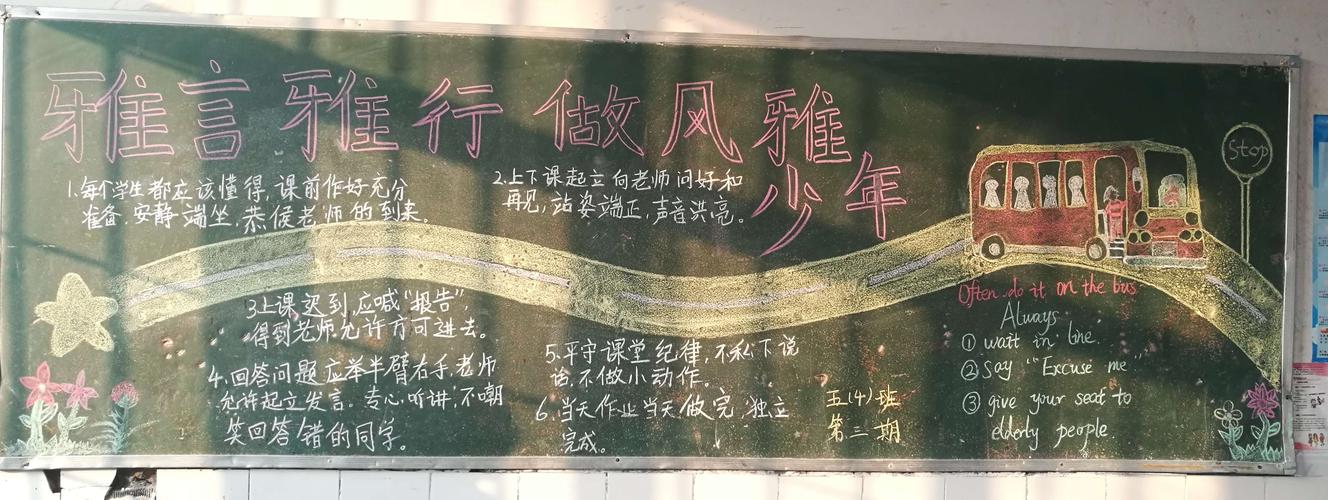 雅言雅行 做风雅
少年
1.每个学生都应该懂得,课前作好充分
准备.安静端坐,恭候老师的到来。
2.上下课起立向老师问好和
再见,站姿端正,声音洪亮。
Stop
3.上课迟到,应喊“报告”,
得到老师允许方可进去。
4.回答问题应举半臂右手,老师
允许起立发言。专心听讲,不嘲
笑回答错的同学。
5.平守课堂纪律,不私下说
话,不做小动作。
6.当天作业当天做完,独立
完成。
五(4)班
第三期
Often do it on the bus
Always
① wait in line.
② Say "Excuse me"
③ give your seat to
elderly people.